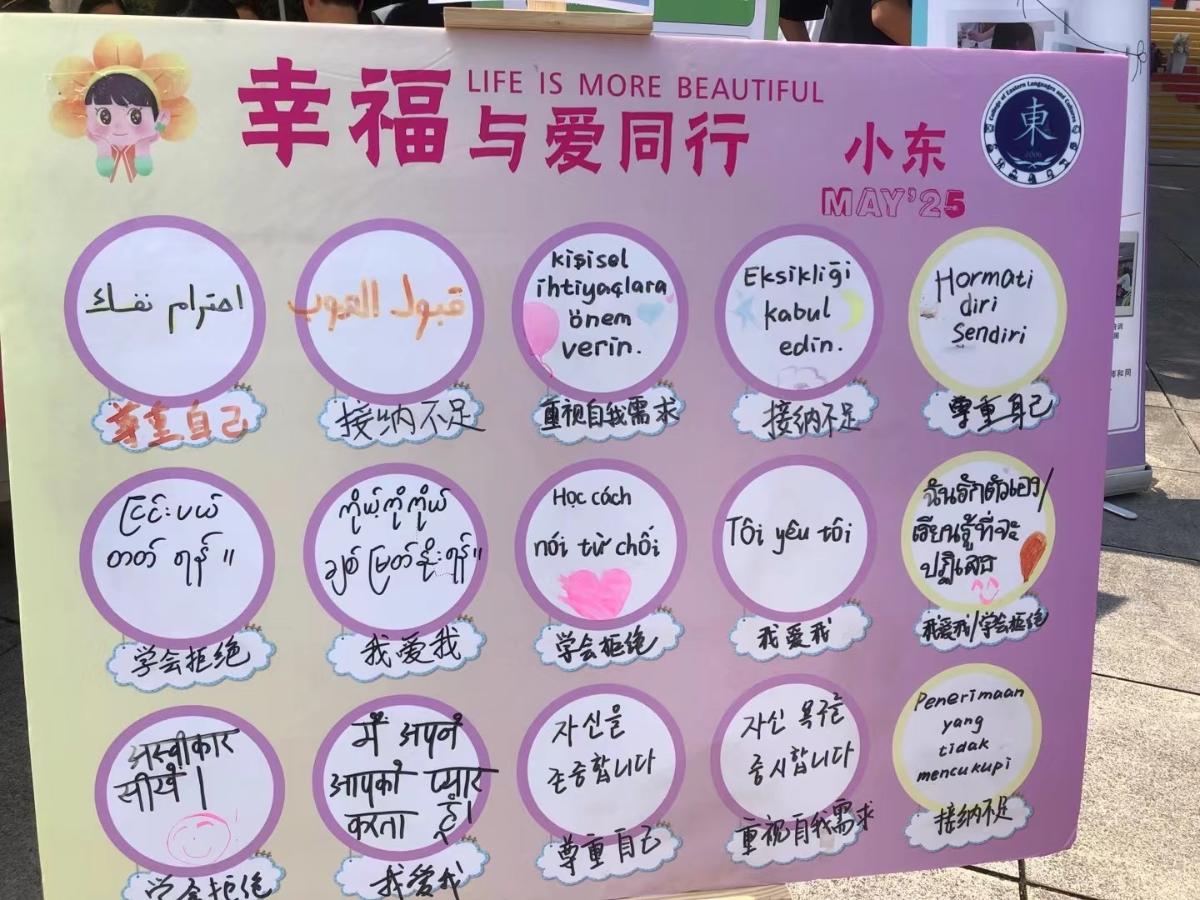 幸福
LIFE IS MORE BEAUTIFUL
与爱同行
小东
MAY'25
College of Eastern Languages and Cultures
東
2006
احترام نفسك
尊重自己
قبول العيوب
接纳不足
kişisel
ihtiyaçlara
önem
verin.
重视自我需求
Eksikliği
kabul
edin.
接纳不足
Hormati
diri
Sendiri
尊重自己
ငြင်းပယ်
တတ် ရန် ။
学会拒绝
ကိုယ့်ကိုကိုယ်
ချစ် မြတ်နိုးရန်။
我爱我
Học cách
nói từ chối
学会拒绝
Tôi yêu tôi
我爱我
ฉันรักตัวเอง/
เรียนรู้ที่จะ
ปฏิเสธ
我爱我/学会拒绝
अस्वीकार
सीखें |
学会拒绝
में अपने
आपको प्यार
करता हूँ।
我爱我
자신을
존중합니다
尊重自己
자신 욕구를
중시합니다
重视自我需求
Penerimaan
yang
tidak
mencukupi
接纳不足